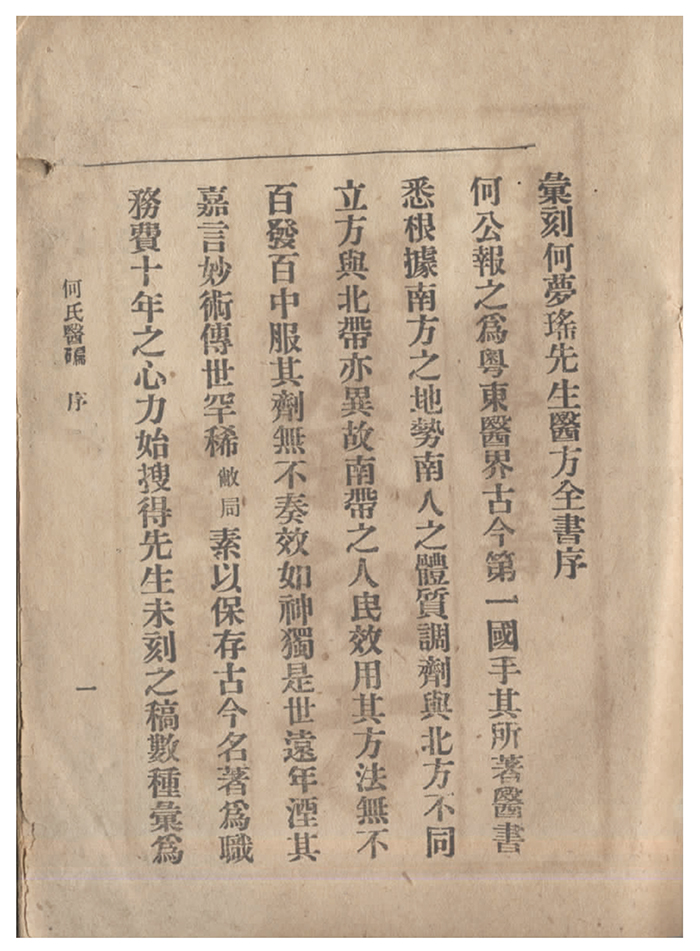 彙刻何夢瑤先生醫方全書序
何公報之爲粵東醫界古今第一國手其所著醫書
悉根據南方之地勢南人之體質調劑與北方不同
立方與北帶亦異故南帶之人民效用其方法無不
百發百中服其劑無不奏效如神獨是世遠年湮其
嘉言妙術傳世罕稀敝局素以保存古今名著爲職
務費十年之心力始搜得先生未刻之稿數種彙爲
何氏醫碥 序
一